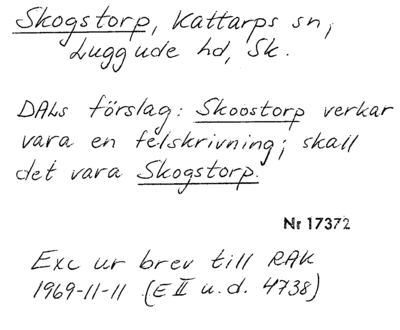 Skogstorp, Kattarps sn,
Luggude hd, Sk.
DALs förslag: Skoostorp verkar
vara en felskrivning; skall
det vara Skogstorp.
Nr 17372
Exc ur brev till RAK
1969-11-11 (E II u.d. 4738)